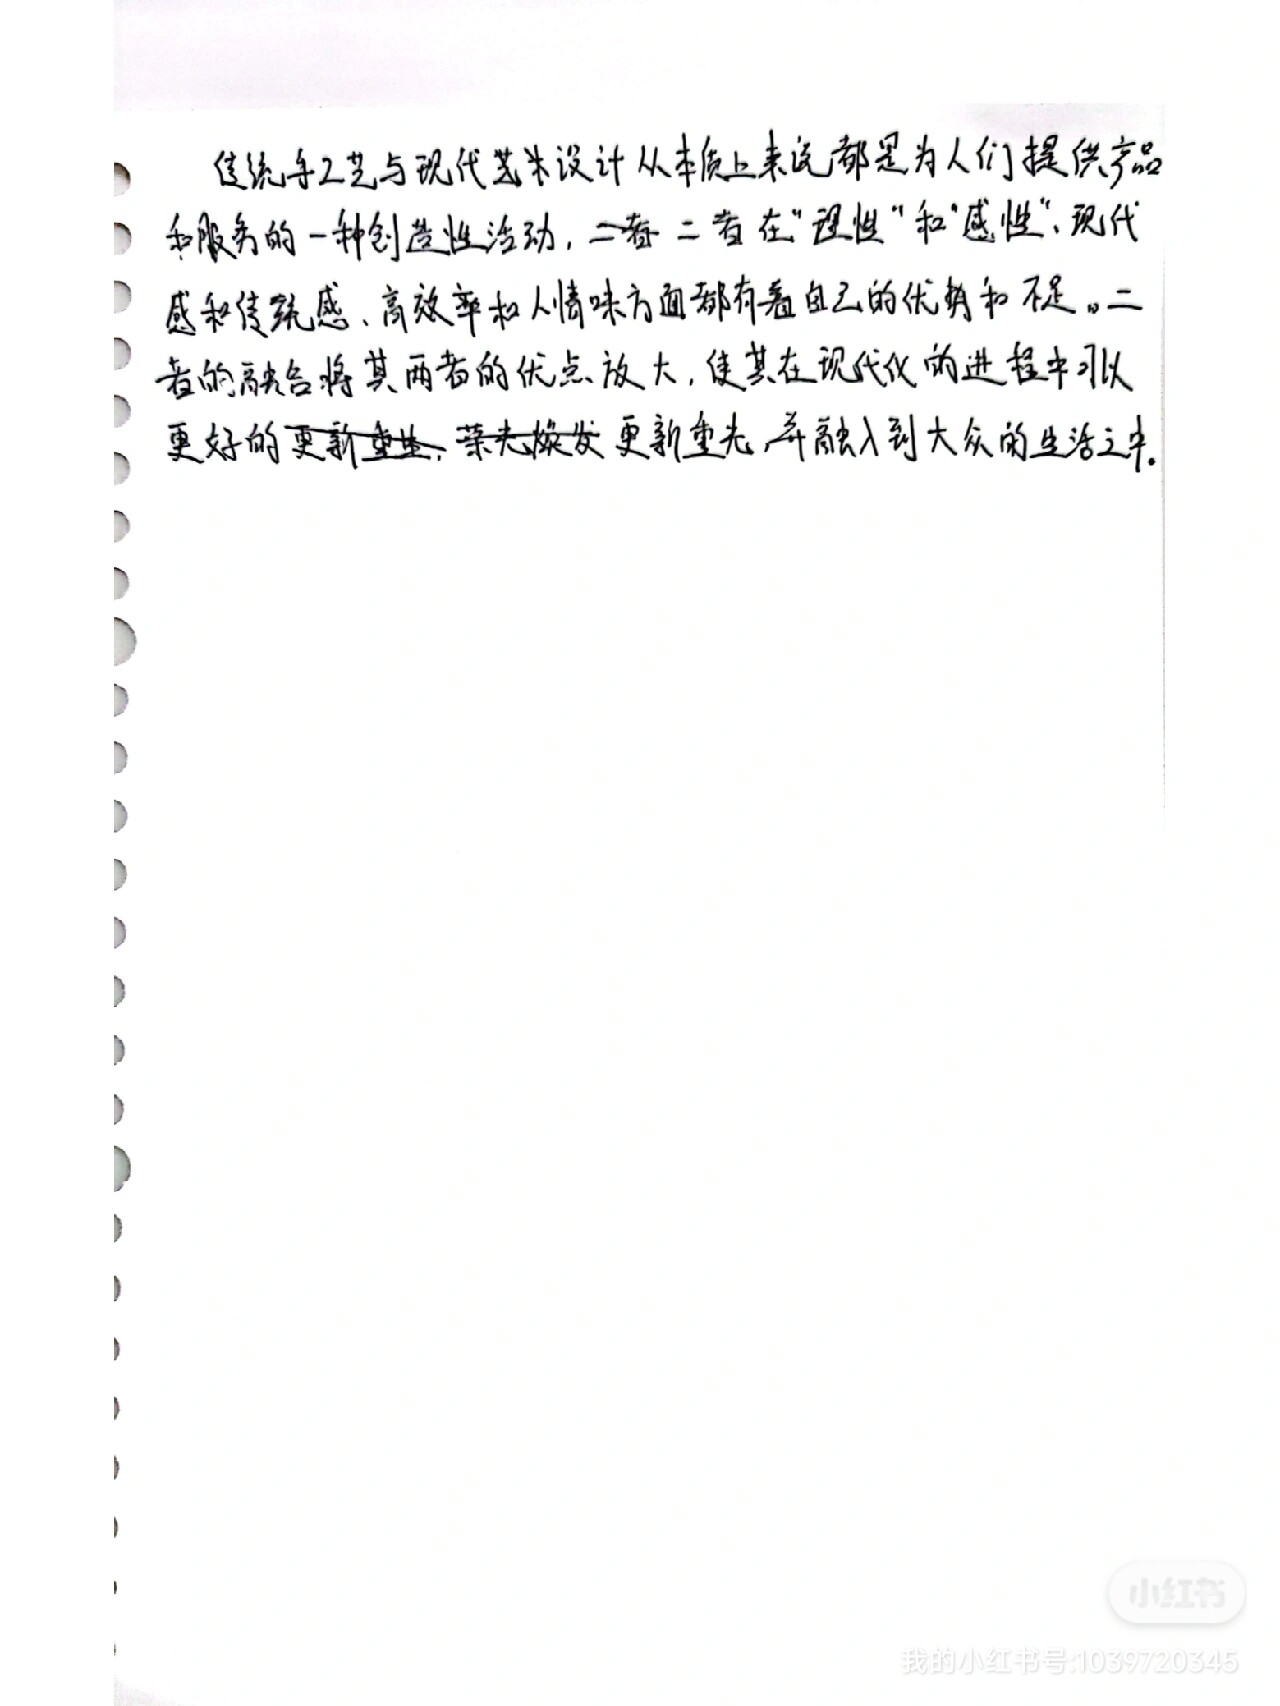 传统手工艺与现代艺术设计从本质上来说都是为人们提供产品
和服务的一种创造性活动，二者 二者在“理性“和“感性“、现代
感和传统感、高效率和人情味方面都有着自己的优势和不足。二
者的融合将其两者的优点放大，使其在现代化的进程中可以
更好的更新重生，荣光焕发更新重光，并融入到大众的生活之中.
小红书
我的小红书号:1039720345